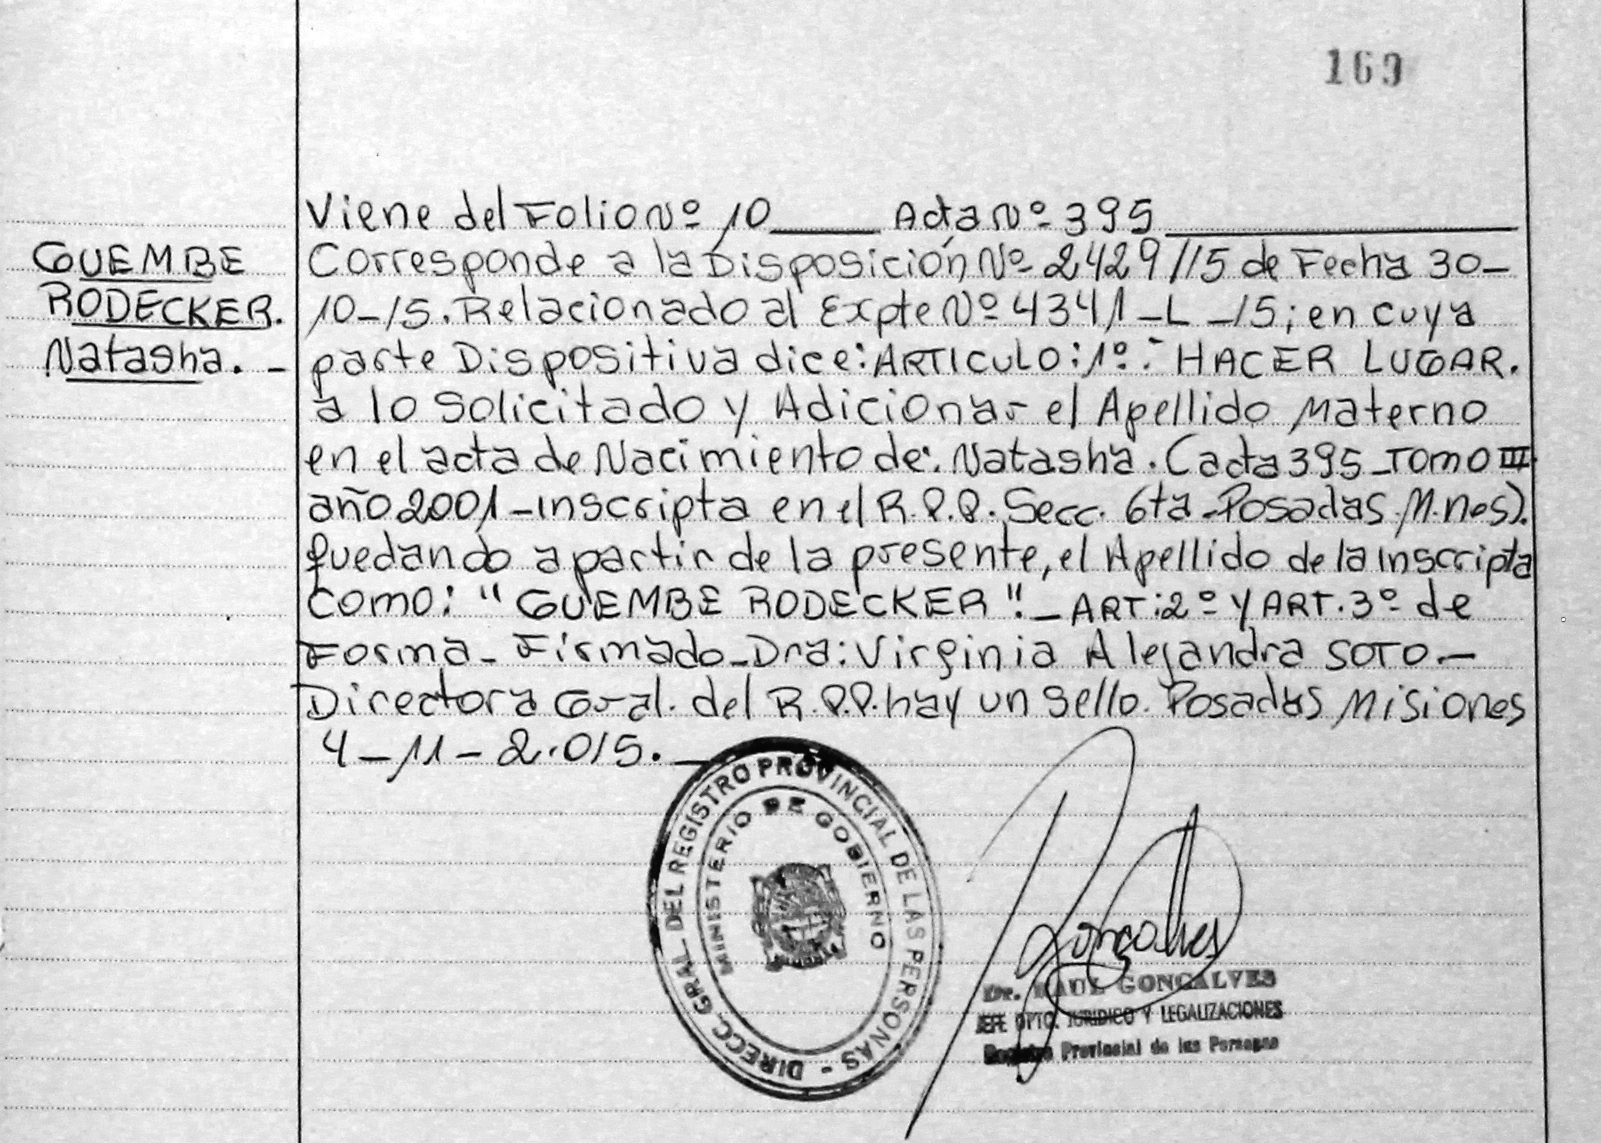 169
Viene del Folio Nº 10 ____ Acta Nº 395 ____
GUEMBE
RODECKER.
Natasha. -
Corresponde a la Disposición Nº 2429/15 de Fecha 30-
10-15. Relacionado al Expte Nº 4341-L-15; en cuya
parte Dispositiva dice: ARTICULO: 1º.- HACER LUGAR.
a lo Solicitado y Adicionar el Apellido Materno
en el acta de Nacimiento de: Natasha. (acta 395_Tomo III
año 2001-inscripta en el R.P.P. Secc. 6ta-Posadas.M.nes).
quedando a partir de la presente, el Apellido de la Inscripta
Como: "GUEMBE RODECKER".- ART: 2º y ART. 3º de
Forma- Firmado-Dra: Virginia Alejandra SOTO.-
Directora Gral. del R.P.P. hay un sello. Posadas Misiones
4-11-2.015.-
DIRECC. GRAL. DEL REGISTRO PROVINCIAL DE LAS PERSONAS -
MINISTERIO DE GOBIERNO
Gonçalves
Dr. RAUL GONCALVES
JEFE DPTO. JURIDICO Y LEGALIZACIONES
Registro Provincial de las Personas